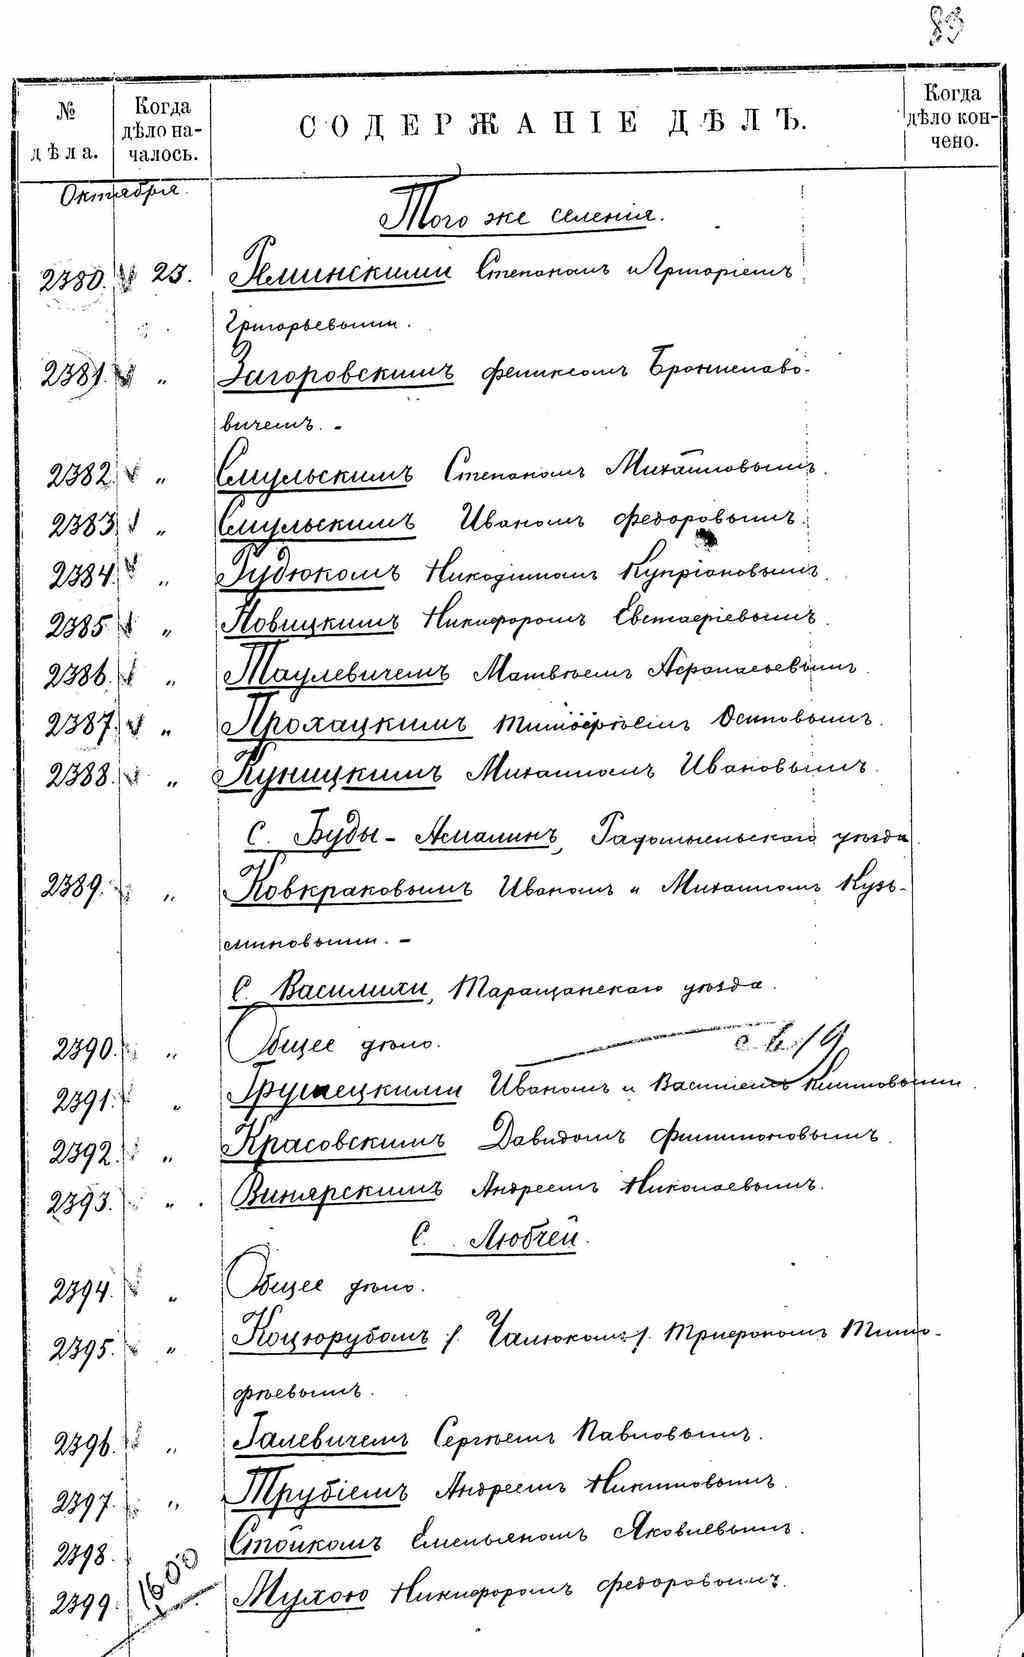 89
№ дѣла.
Когда дѣло на-
чалось.
СОДЕРЖАНІЕ ДѢЛЪ.
Когда дѣло кон-
чено.
Октября.
Того же селенія.
2380. 23. Яминскими Степаномъ и Григоріемъ
Григорьевыми.
2381. „ Загоровскимъ Феликсомъ Брониславо-
вичемъ. –
2382. „ Смульскимъ Степаномъ Михайловымъ.
2383. „ Смульскимъ Иваномъ Федоровымъ.
2384. „ Гудзюкомъ Никодимомъ Купріановымъ.
2385. „ Новицкимъ Никифоромъ Евстафіевымъ.
2386. „ Таулевичемъ Матвѣемъ Афанасьевымъ.
2387. „ Прохацкимъ Тимофѣемъ Осиповымъ.
2388. „ Куницкимъ Михаиломъ Ивановымъ.
С. Буды-Асмалинъ, Радомысльскаго уѣзда
2389. „ Ковкраковымъ Иваномъ и Михаиломъ Кузь-
миновыми. –
С. Василихи, Таращанскаго уѣзда.
2390. „ Общее дѣло.
2391. „ Грушецкими Иваномъ и Василіемъ Климовыми.
2392. „ Красовскимъ Давидомъ Филимоновымъ.
2393. „ Винярскимъ Андреемъ Николаевымъ.
С. Любчей.
2394. „ Общее дѣло.
2395. „ Коцюрубомъ /: Чалюкомъ :/ Трифономъ Тимо-
фѣевымъ.
2396. „ Галевичемъ Сергѣемъ Павловымъ.
2397. „ Трубіемъ Андреемъ Никитовымъ.
2398. Стойкомъ Емельяномъ Яковлевымъ.
1600
2399. Мухою Никифоромъ Федоровымъ.